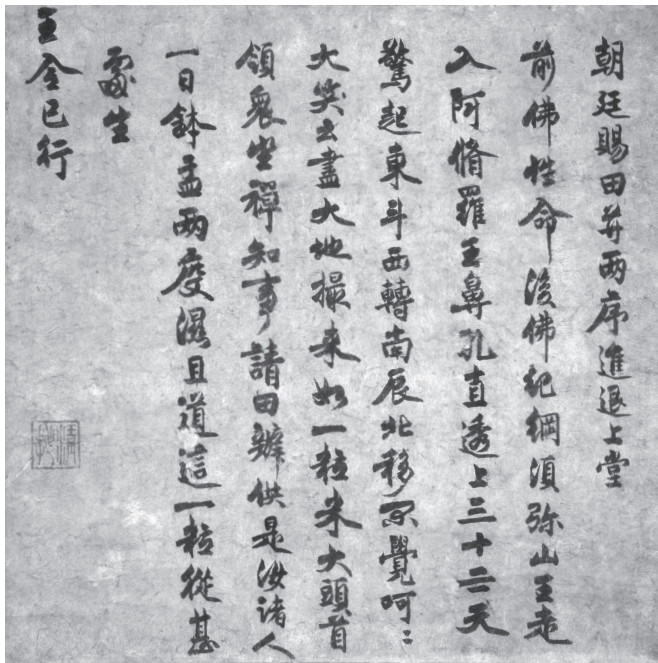 朝廷賜田并兩序進退上堂
前佛性命後佛紀綱須弥山王走
入阿脩羅王鼻孔直透上三十三天
驚起東斗西轉南辰北移不覺呵〻
大笑云盡大地撮来如一粒米大頭首
領衆坐禪知事請田辦供是汝諸人
一日鉢盂兩度濕且道這一粒從甚
處生
王令已行